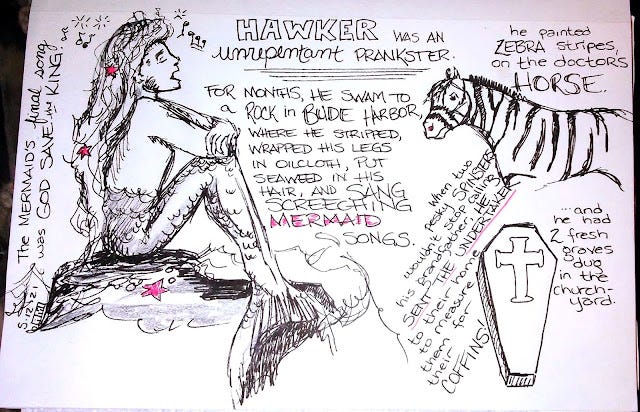 HAWKER WAS AN
unrepentant PRANKSTER.
FOR MONTHS, HE SWAM TO
a ROCK in BUDE HARBOR,
WHERE HE STRIPPED,
WRAPPED HIS LEGS
IN OILCLOTH, PUT
SEAWEED IN HIS
HAIR, AND SANG
SCREECHING
MERMAID
SONGS.
The MERMAID'S final song
was GOD SAVE the KING!
he painted
ZEBRA STRIPES,
on the doctors
HORSE.
When two
pesky SPINSTERS
wouldn't stop calling
his Grandfather, he
SENT THE UNDERTAKER
to their home
to measure
them for
COFFINS!
...and
he had
2 fresh
graves
dug
in the
church-
yard.